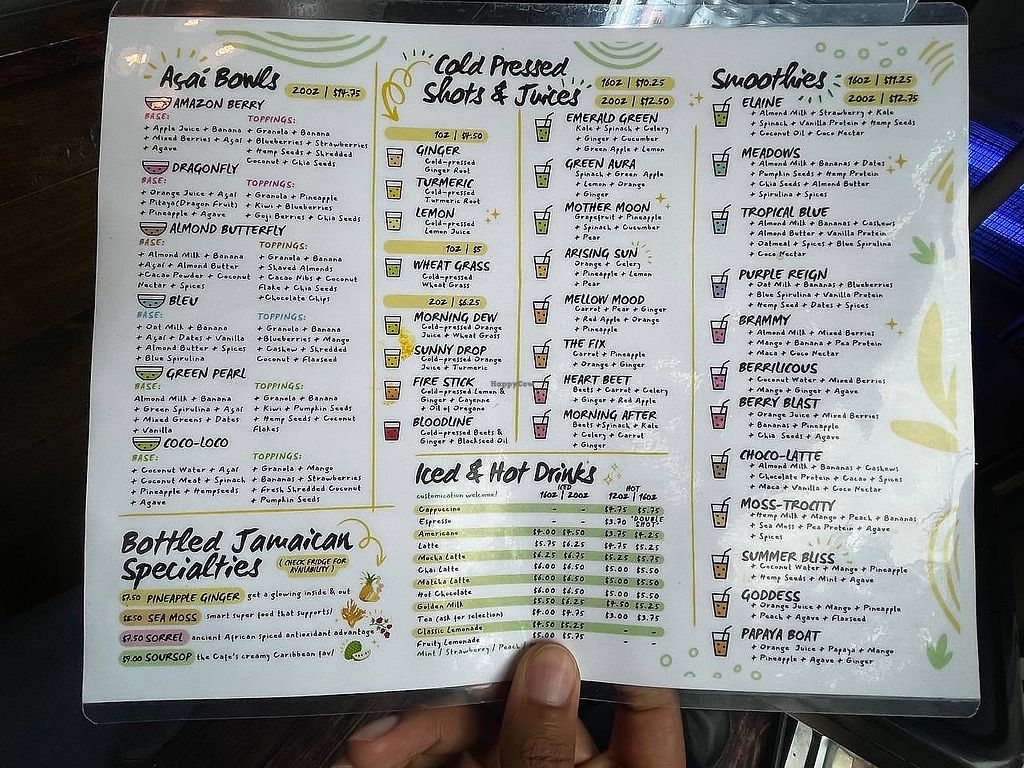 Açaí Bowls
20OZ | $14.75
AMAZON BERRY
BASE:
+ Apple Juice + Banana
+ Mixed Berries + Açaí
+ Agave
TOPPINGS:
+ Granola + Banana
+ Blueberries + Strawberries
+ Hemp Seeds + Shredded
Coconut + Chia Seeds
DRAGONFLY
BASE:
+ Orange Juice + Açaí
+ Pitaya(Dragon Fruit)
+ Pineapple + Agave
TOPPINGS:
+ Granola + Pineapple
+ Kiwi + Blueberries
+ Goji Berries + Chia Seeds
ALMOND BUTTERFLY
BASE:
+ Almond Milk + Banana
+Açaí + Almond Butter
+Cacao Powder + Coconut
Nectar + Spices
TOPPINGS:
+ Granola + Banana
+ Shaved Almonds
+ Cacao Nibs + Coconut
Flake + Chia Seeds
+ Chocolate Chips
BLEU
BASE:
+ Oat Milk + Banana
+ Açaí + Dates + Vanilla
+ Almond Butter + Spices
+ Blue Spirulina
TOPPINGS:
+ Granola + Banana
+Blueberries + Mango
+ Cashew + Shredded
Coconut + Flaxseed
GREEN PEARL
BASE:
Almond Milk + Banana
+ Green Spirulina + Açaí
+ Mixed Greens + Dates
+ Vanilla
TOPPINGS:
+ Granola + Banana
+ Kiwi + Pumpkin Seeds
+ Hemp Seeds + Coconut
Flakes
COCO-LOCO
BASE:
+ Coconut Water + Açaí
+ Coconut Meat + Spinach
+ Pineapple + Hempseeds
+ Agave
TOPPINGS:
+ Granola + Mango
+ Bananas + Strawberries
+ Fresh Shredded Coconut
+ Pumpkin Seeds
Bottled Jamaican
Specialties
( CHECK FRIDGE FOR
AVAILABILITY )
$7.50 PINEAPPLE GINGER get a glowing inside & out
$8.50 SEA MOSS smart super food that supports!
$7.50 SORREL ancient African spiced antioxidant advantage
$9.00 SOURSOP the Cafe's creamy Caribbean fav!
Cold Pressed
Shots & Juices
16OZ | $10.25
20OZ | $12.50
1OZ | $4.50
GINGER
Cold-pressed
Ginger Root
TURMERIC
Cold-pressed
Turmeric Root
LEMON
Cold-pressed
Lemon Juice
1OZ | $5
WHEAT GRASS
Cold-pressed
Wheat Grass
2OZ | $6.25
MORNING DEW
Cold-pressed Orange
Juice + Wheat Grass
SUNNY DROP
Cold-pressed Orange
Juice + Turmeric
FIRE STICK
Cold-pressed Lemon &
Ginger + Cayenne
+ Oil of Oregano
BLOODLINE
Cold-pressed Beets &
Ginger + Blackseed Oil
EMERALD GREEN
Kale + Spinach + Celery
+ Ginger + Cucumber
+ Green Apple + Lemon
GREEN AURA
Spinach + Green Apple
+ Lemon + Orange
+ Ginger
MOTHER MOON
Grapefruit + Pineapple
+ Spinach + Cucumber
+ Pear
ARISING SUN
Orange + Celery
+ Pineapple + Lemon
+ Pear
MELLOW MOOD
Carrot + Pear + Ginger
+ Red Apple + Orange
+ Pineapple
THE FIX
Carrot + Pineapple
+ Orange + Ginger
HEART BEET
Beets + Carrot + Celery
+ Ginger + Red Apple
MORNING AFTER
Beets +Spinach + Kale
+ Celery + Carrot
+ Ginger
HappyCow
Iced & Hot Drinks
customization welcome!
ICED HOT
16OZ | 20OZ 12OZ | 16OZ
Cappuccino - - $4.75 $5.75
Espresso - - $3.70 *DOUBLE SHOT*
Americano $4.00 $4.50 $3.75 $4.25
Latte $5.75 $6.25 $4.75 $5.25
Mocha Latte $6.25 $6.75 $5.25 $5.75
Chai Latte $6.00 $6.50 $5.00 $5.50
Matcha Latte $6.00 $6.50 $5.00 $5.50
Hot Chocolate $6.00 $6.50 $5.00 $5.50
Golden Milk $5.50 $6.25 $4.50 $5.25
Tea (ask for selection) $4.00 $4.75 $3.00 $3.75
Classic Lemonade $4.50 $5.25 - -
Fruity Lemonade $5.00 $5.75 - -
Mint / Strawberry / Peach /
Smoothies
16OZ | $11.25
20OZ | $12.75
ELAINE
+ Almond Milk + Strawberry + Kale
+ Spinach + Vanilla Protein + Hemp Seeds
+ Coconut Oil + Coco Nectar
MEADOWS
+ Almond Milk + Bananas + Dates
+ Pumpkin Seeds + Hemp Protein
+ Chia Seeds + Almond Butter
+ Spirulina + Spices
TROPICAL BLUE
+ Almond Milk + Bananas + Cashews
+ Almond Butter + Vanilla Protein
+ Oatmeal + Spices + Blue Spirulina
+ Coco Nectar
PURPLE REIGN
+ Oat Milk + Bananas + Blueberries
+ Blue Spirulina + Vanilla Protein
+ Hemp Seed + Dates + Spices
BRAMMY
+ Almond Milk + Mixed Berries
+ Mango + Banana + Pea Protein
+ Maca + Coco Nectar
BERRILICOUS
+ Coconut Water + Mixed Berries
+ Mango + Ginger + Agave
BERRY BLAST
+ Orange Juice + Mixed Berries
+ Bananas + Pineapple
+ Chia Seeds + Agave
CHOCO-LATTE
+ Almond Milk + Bananas + Cashews
+ Chocolate Protein + Cacao + Spices
+ Maca + Vanilla + Coco Nectar
MOSS-TROCITY
+Hemp Milk + Mango + Peach + Bananas
+ Sea Moss + Pea Protein + Agave
+ Spices
SUMMER BLISS
+ Coconut Water + Mango + Pineapple
+ Hemp Seeds + Mint + Agave
GODDESS
+ Orange Juice + Mango + Pineapple
+ Peach + Agave + Flaxseed
PAPAYA BOAT
+ Orange Juice + Papaya + Mango
+ Pineapple + Agave + Ginger